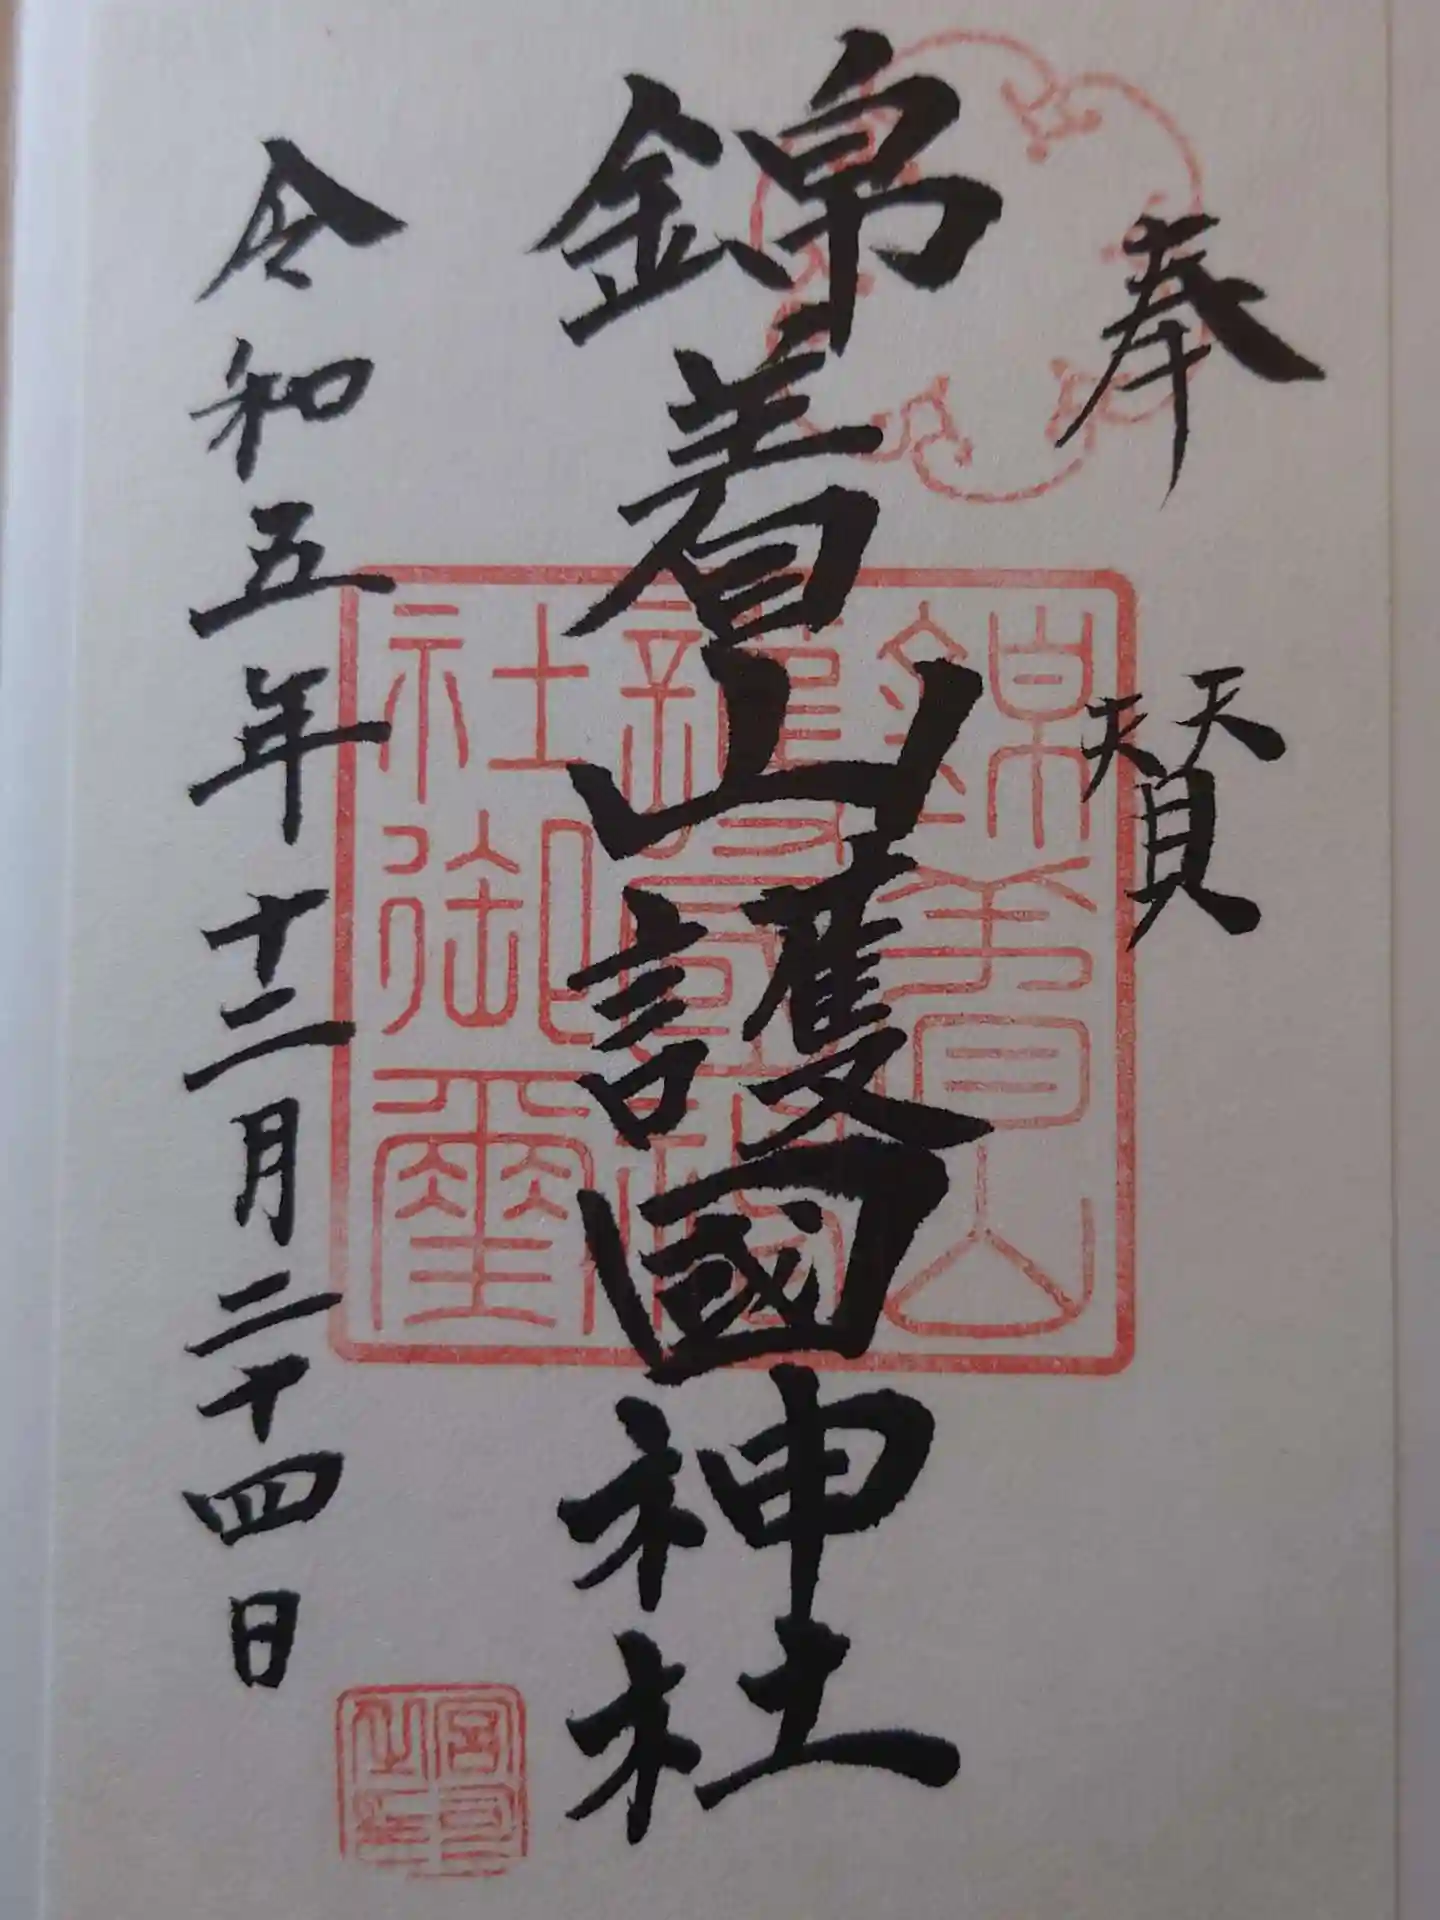 奉賛
錦着山護國神社
令和五年十二月二十四日
錦着山
護國神
社御璽
宮司
之印